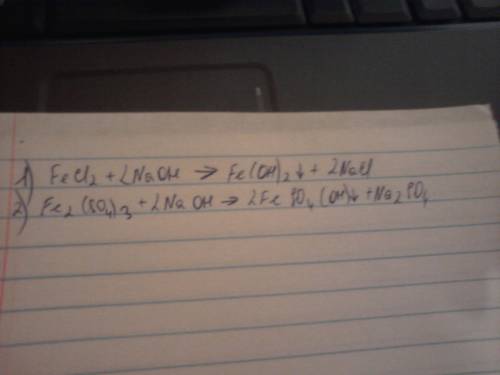 1) FeCl₂ + 2NaOH → Fe(OH)₂↓ + 2NaCl
2) Fe₂(SO₄)₃ + 2NaOH → 2FeSO₄(OH)↓ + Na₂SO₄